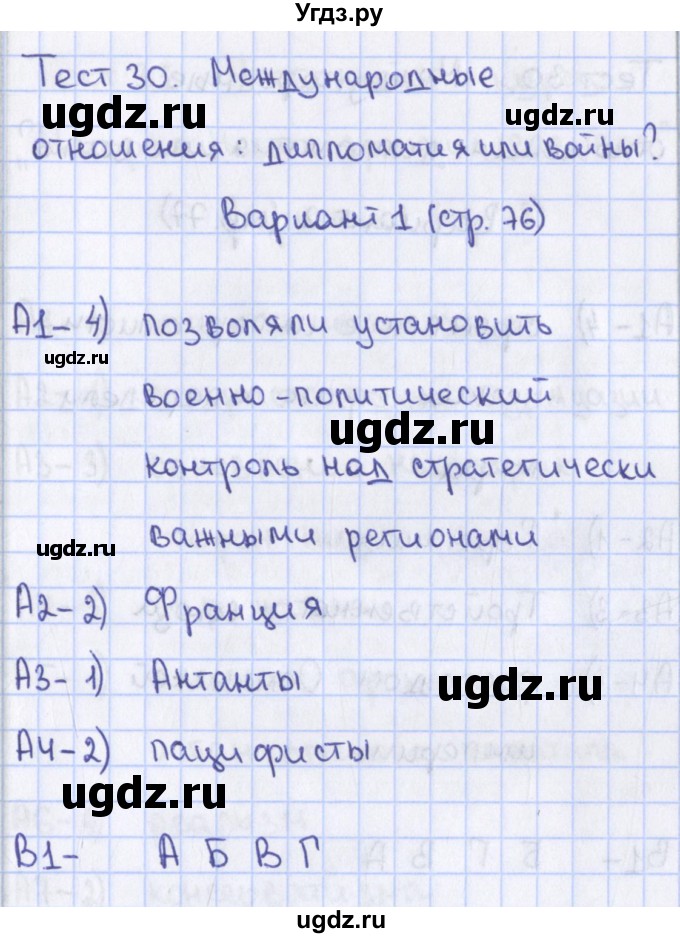 Угдз.ру
Тест 30. Международные
ugdz.ru
отношения: дипломатия или войны?
Вариант 1 (стр. 76)
А1- 4) позволяли установить
ugdz.ru
военно-политический
ugdz.ru
контроль над стратегически
важными регионами
ugdz.ru
А2- 2) Франция
А3- 1) Антанты
ugdz.ru
А4- 2) пацифисты
ugdz.ru
В1- А Б В Г
ugdz.ru